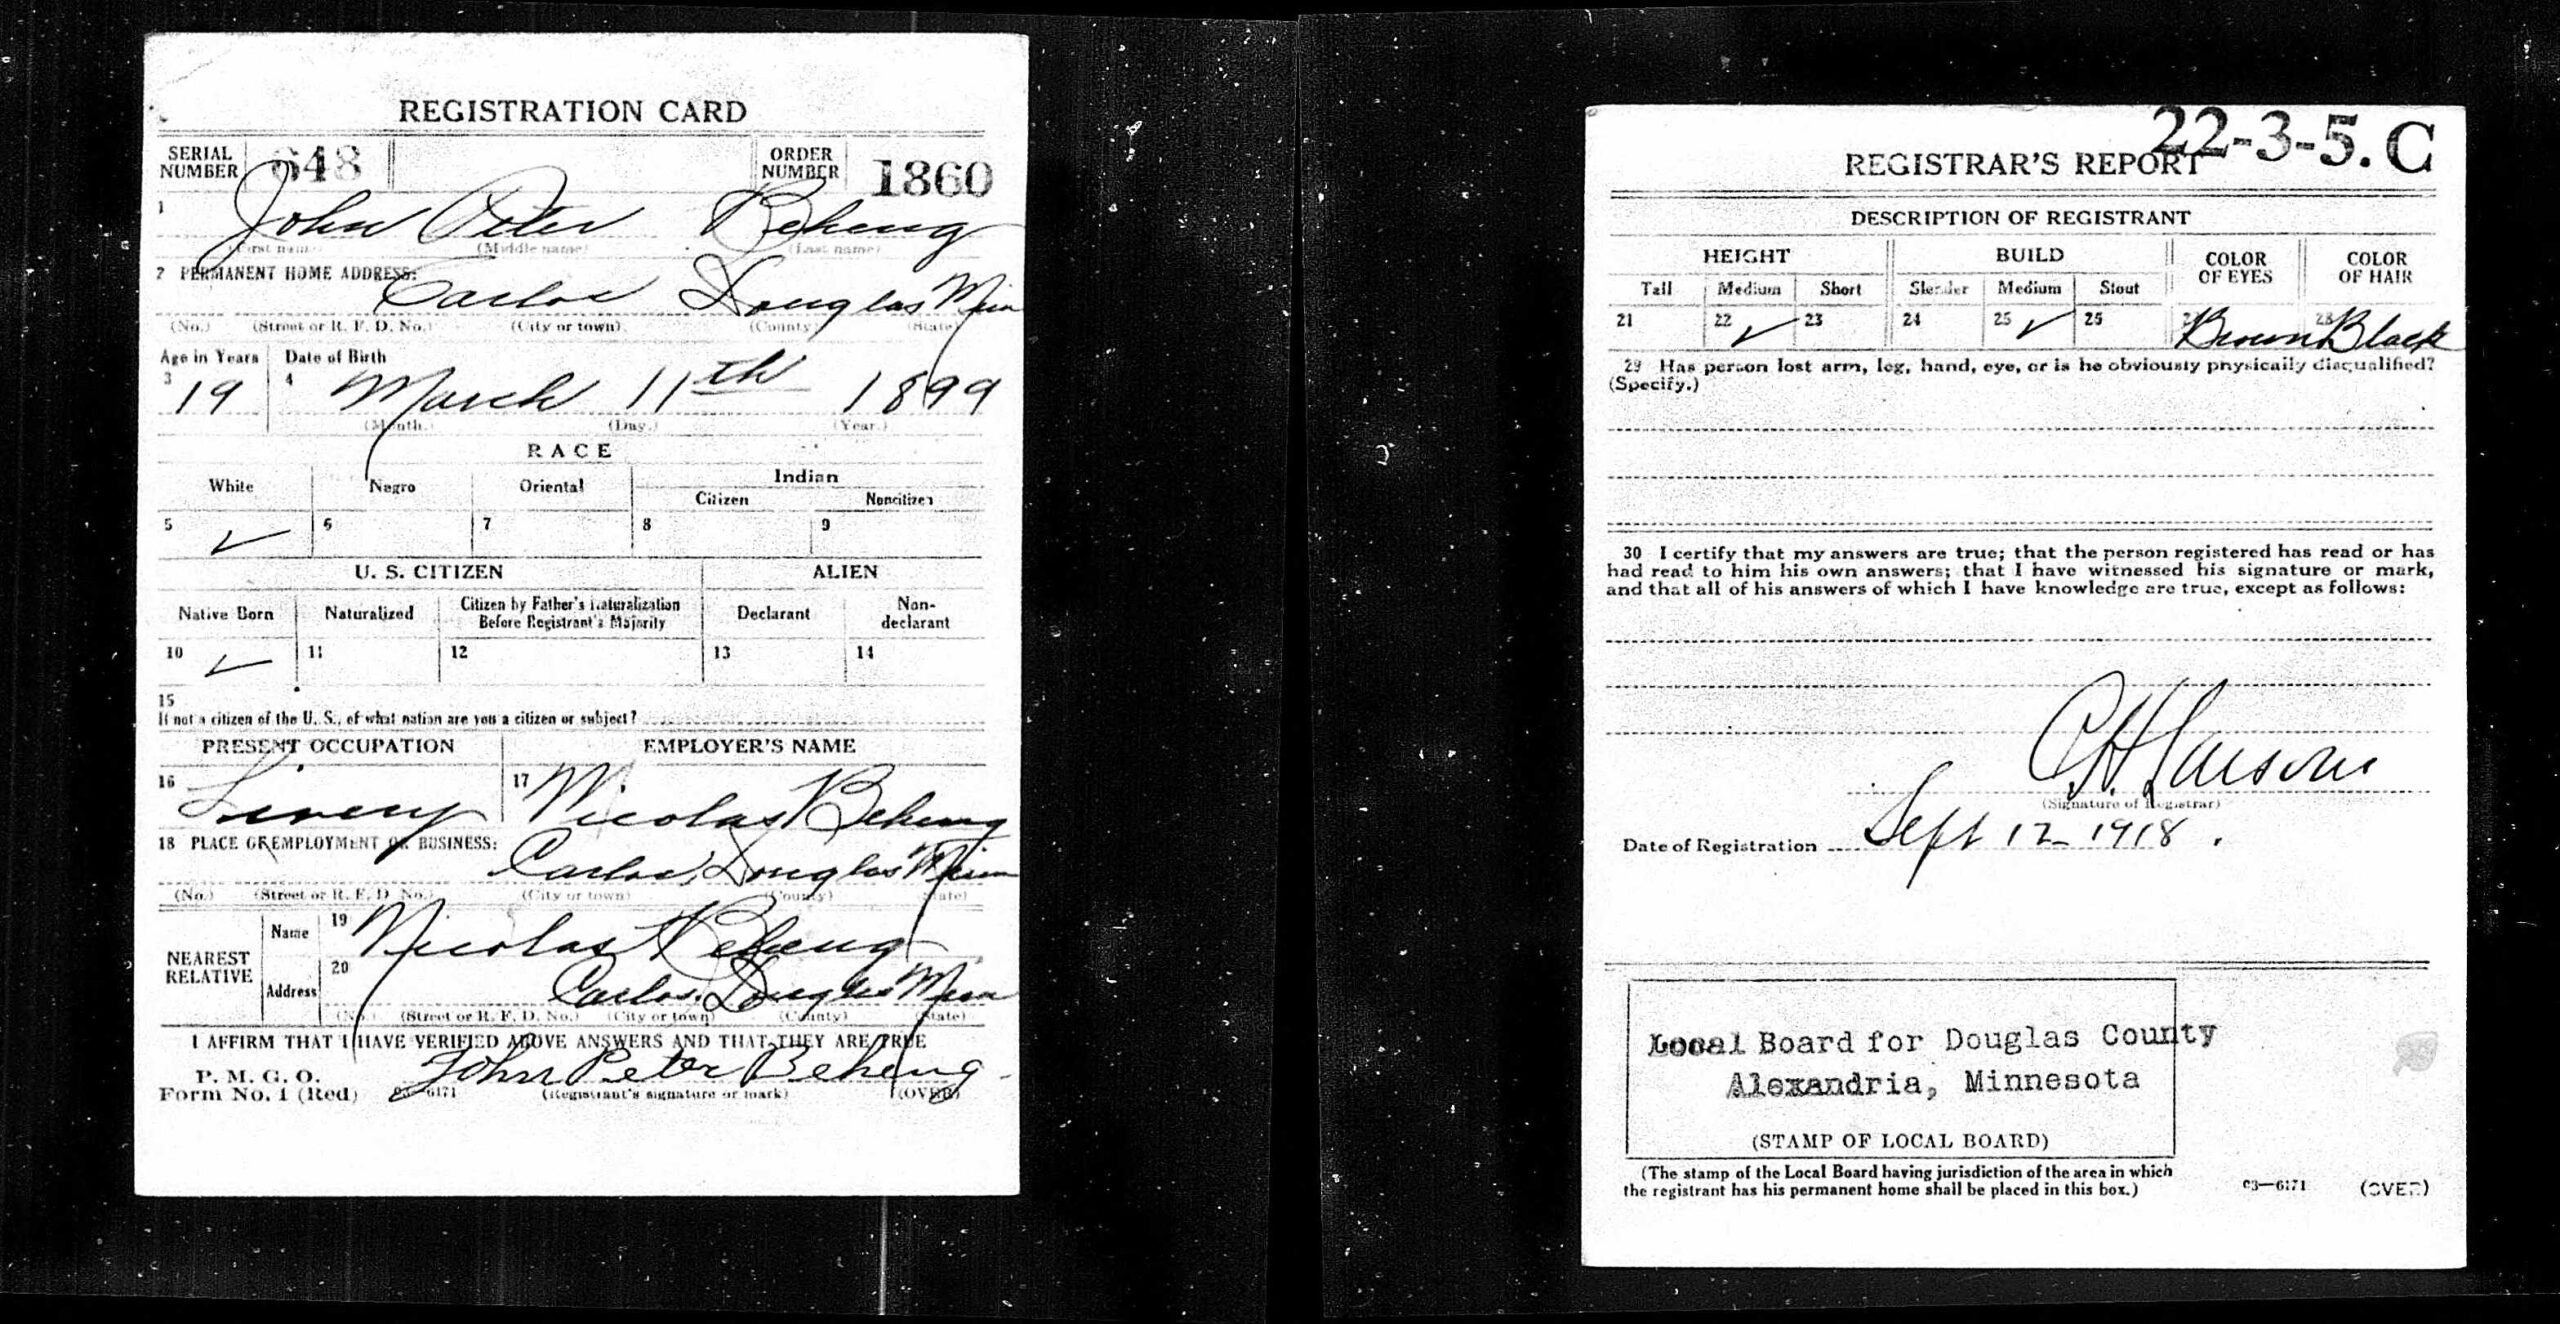 REGISTRATION CARD
SERIAL NUMBER 648 ORDER NUMBER 1860
1 John Peter Beheng
(First name) (Middle name) (Last name)
2 PERMANENT HOME ADDRESS: Carlos Douglas Minn
(No.) (Street or R. F. D. No.) (City or town) (County) (State)
Age in Years Date of Birth
3 19 4 March 11th 1899
(Month.) (Day.) (Year.)
RACE
White Negro Oriental Indian
Citizen Noncitizen
5 ✓ 6 7 8 9
U. S. CITIZEN ALIEN
Native Born Naturalized Citizen by Father's Naturalization Before Registrant's Majority Declarant Non-declarant
10 ✓ 11 12 13 14
15
If not a citizen of the U. S., of what nation are you a citizen or subject?
PRESENT OCCUPATION EMPLOYER'S NAME
16 Livery 17 Nicolas Beheng
18 PLACE OF EMPLOYMENT OR BUSINESS:
Carlos, Douglas Minn
(No.) (Street or R. F. D. No.) (City or town) (County) (State)
NEAREST RELATIVE
Name 19 Nicolas Beheng
Address 20 Carlos, Douglas Minn
(No.) (Street or R. F. D. No.) (City or town) (County) (State)
I AFFIRM THAT I HAVE VERIFIED ABOVE ANSWERS AND THAT THEY ARE TRUE
P. M. G. O.
Form No. 1 (Red) 03—6171 John Peter Beheng
(Registrant's signature or mark) (OVER)
22-3-5. C
REGISTRAR'S REPORT
DESCRIPTION OF REGISTRANT
HEIGHT BUILD COLOR OF EYES COLOR OF HAIR
Tall Medium Short Slender Medium Stout
21 22 ✓ 23 24 25 ✓ 25 Brown 28 Black
29 Has person lost arm, leg, hand, eye, or is he obviously physically disqualified?
(Specify.)
30 I certify that my answers are true; that the person registered has read or has
had read to him his own answers; that I have witnessed his signature or mark,
and that all of his answers of which I have knowledge are true, except as follows:
C H Larson
(Signature of Registrar)
Date of Registration Sept 12 1918.
Local Board for Douglas County
Alexandria, Minnesota
(STAMP OF LOCAL BOARD)
(The stamp of the Local Board having jurisdiction of the area in which
the registrant has his permanent home shall be placed in this box.)
03—6171 (OVER)